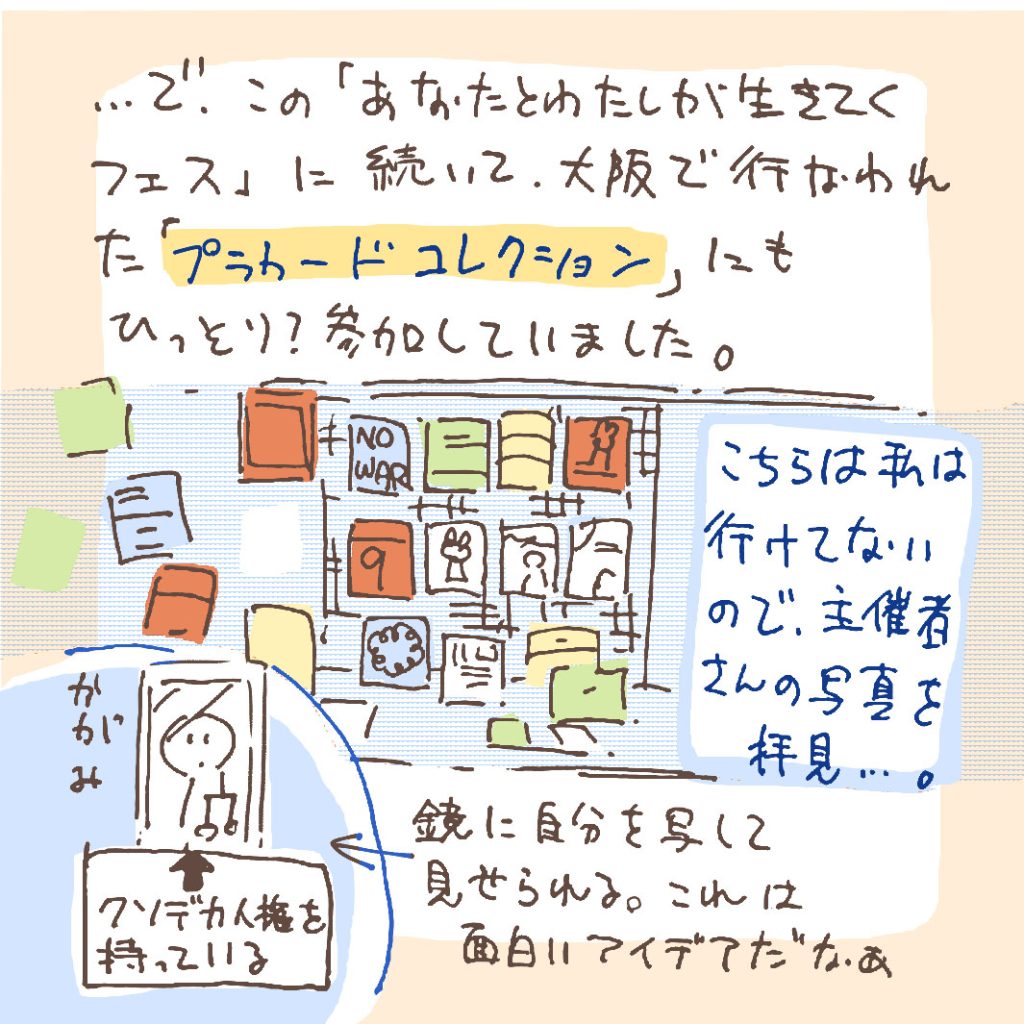 …で、この「あなたとわたしが生きてく
フェス」に続いて、大阪で行なわれ
た「プラカードコレクション」にも
ひっそり?参加していました。
NO
WAR
9
こちらは私は
行けてない
ので、主催者
さんの写真を
拝見…。
かがみ
クソデカ人権を
持っている
鏡に自分を写して
見せられる。これは
面白いアイデアだなぁ